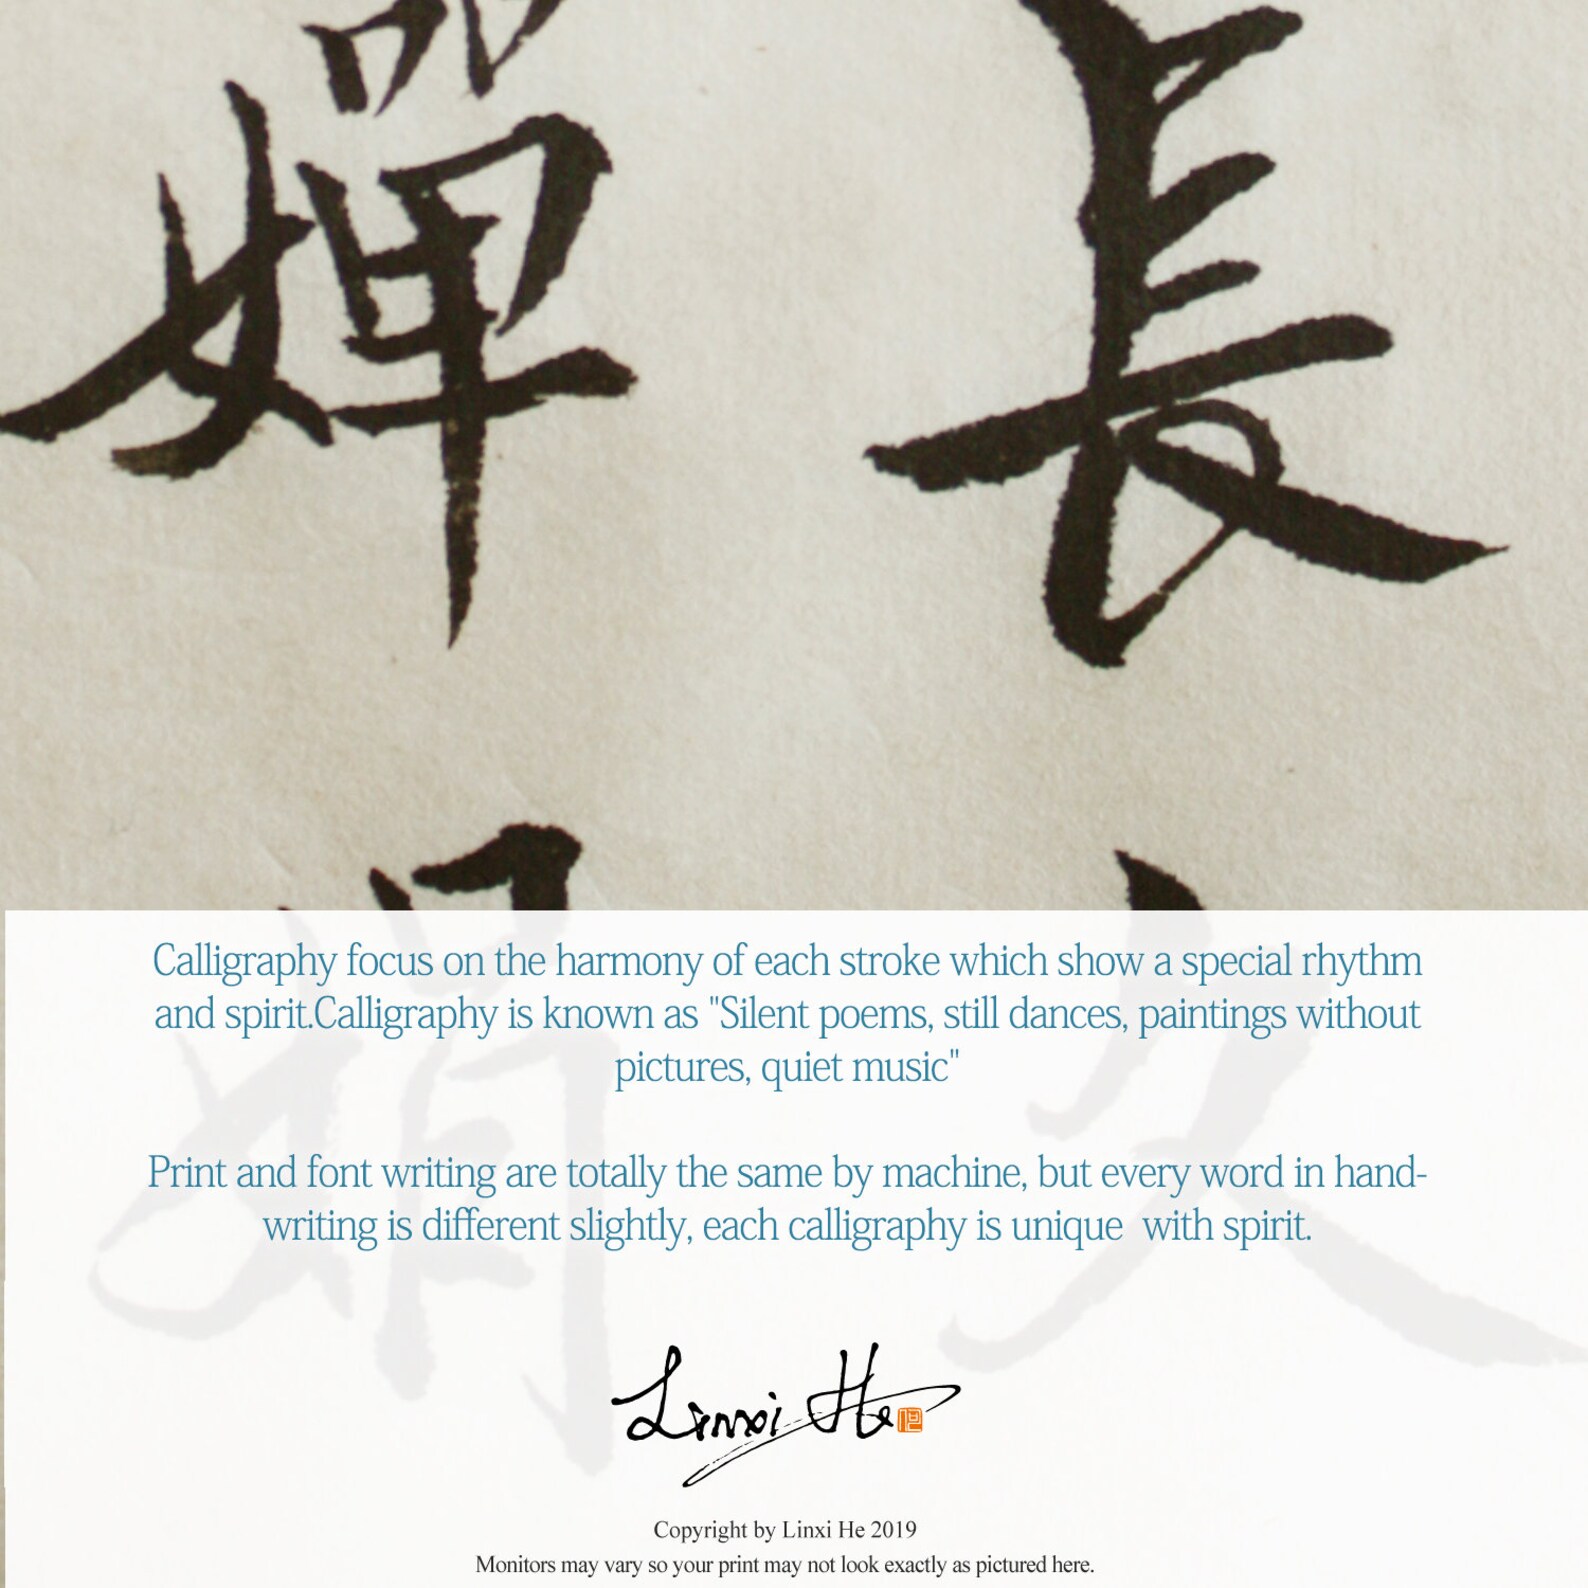 嬋 長
娟 久
Calligraphy focus on the harmony of each stroke which show a special rhythm
and spirit.Calligraphy is known as "Silent poems, still dances, paintings without
pictures, quiet music"
Print and font writing are totally the same by machine, but every word in hand-
writing is different slightly, each calligraphy is unique with spirit.
Linxi He
Copyright by Linxi He 2019
Monitors may vary so your print may not look exactly as pictured here.